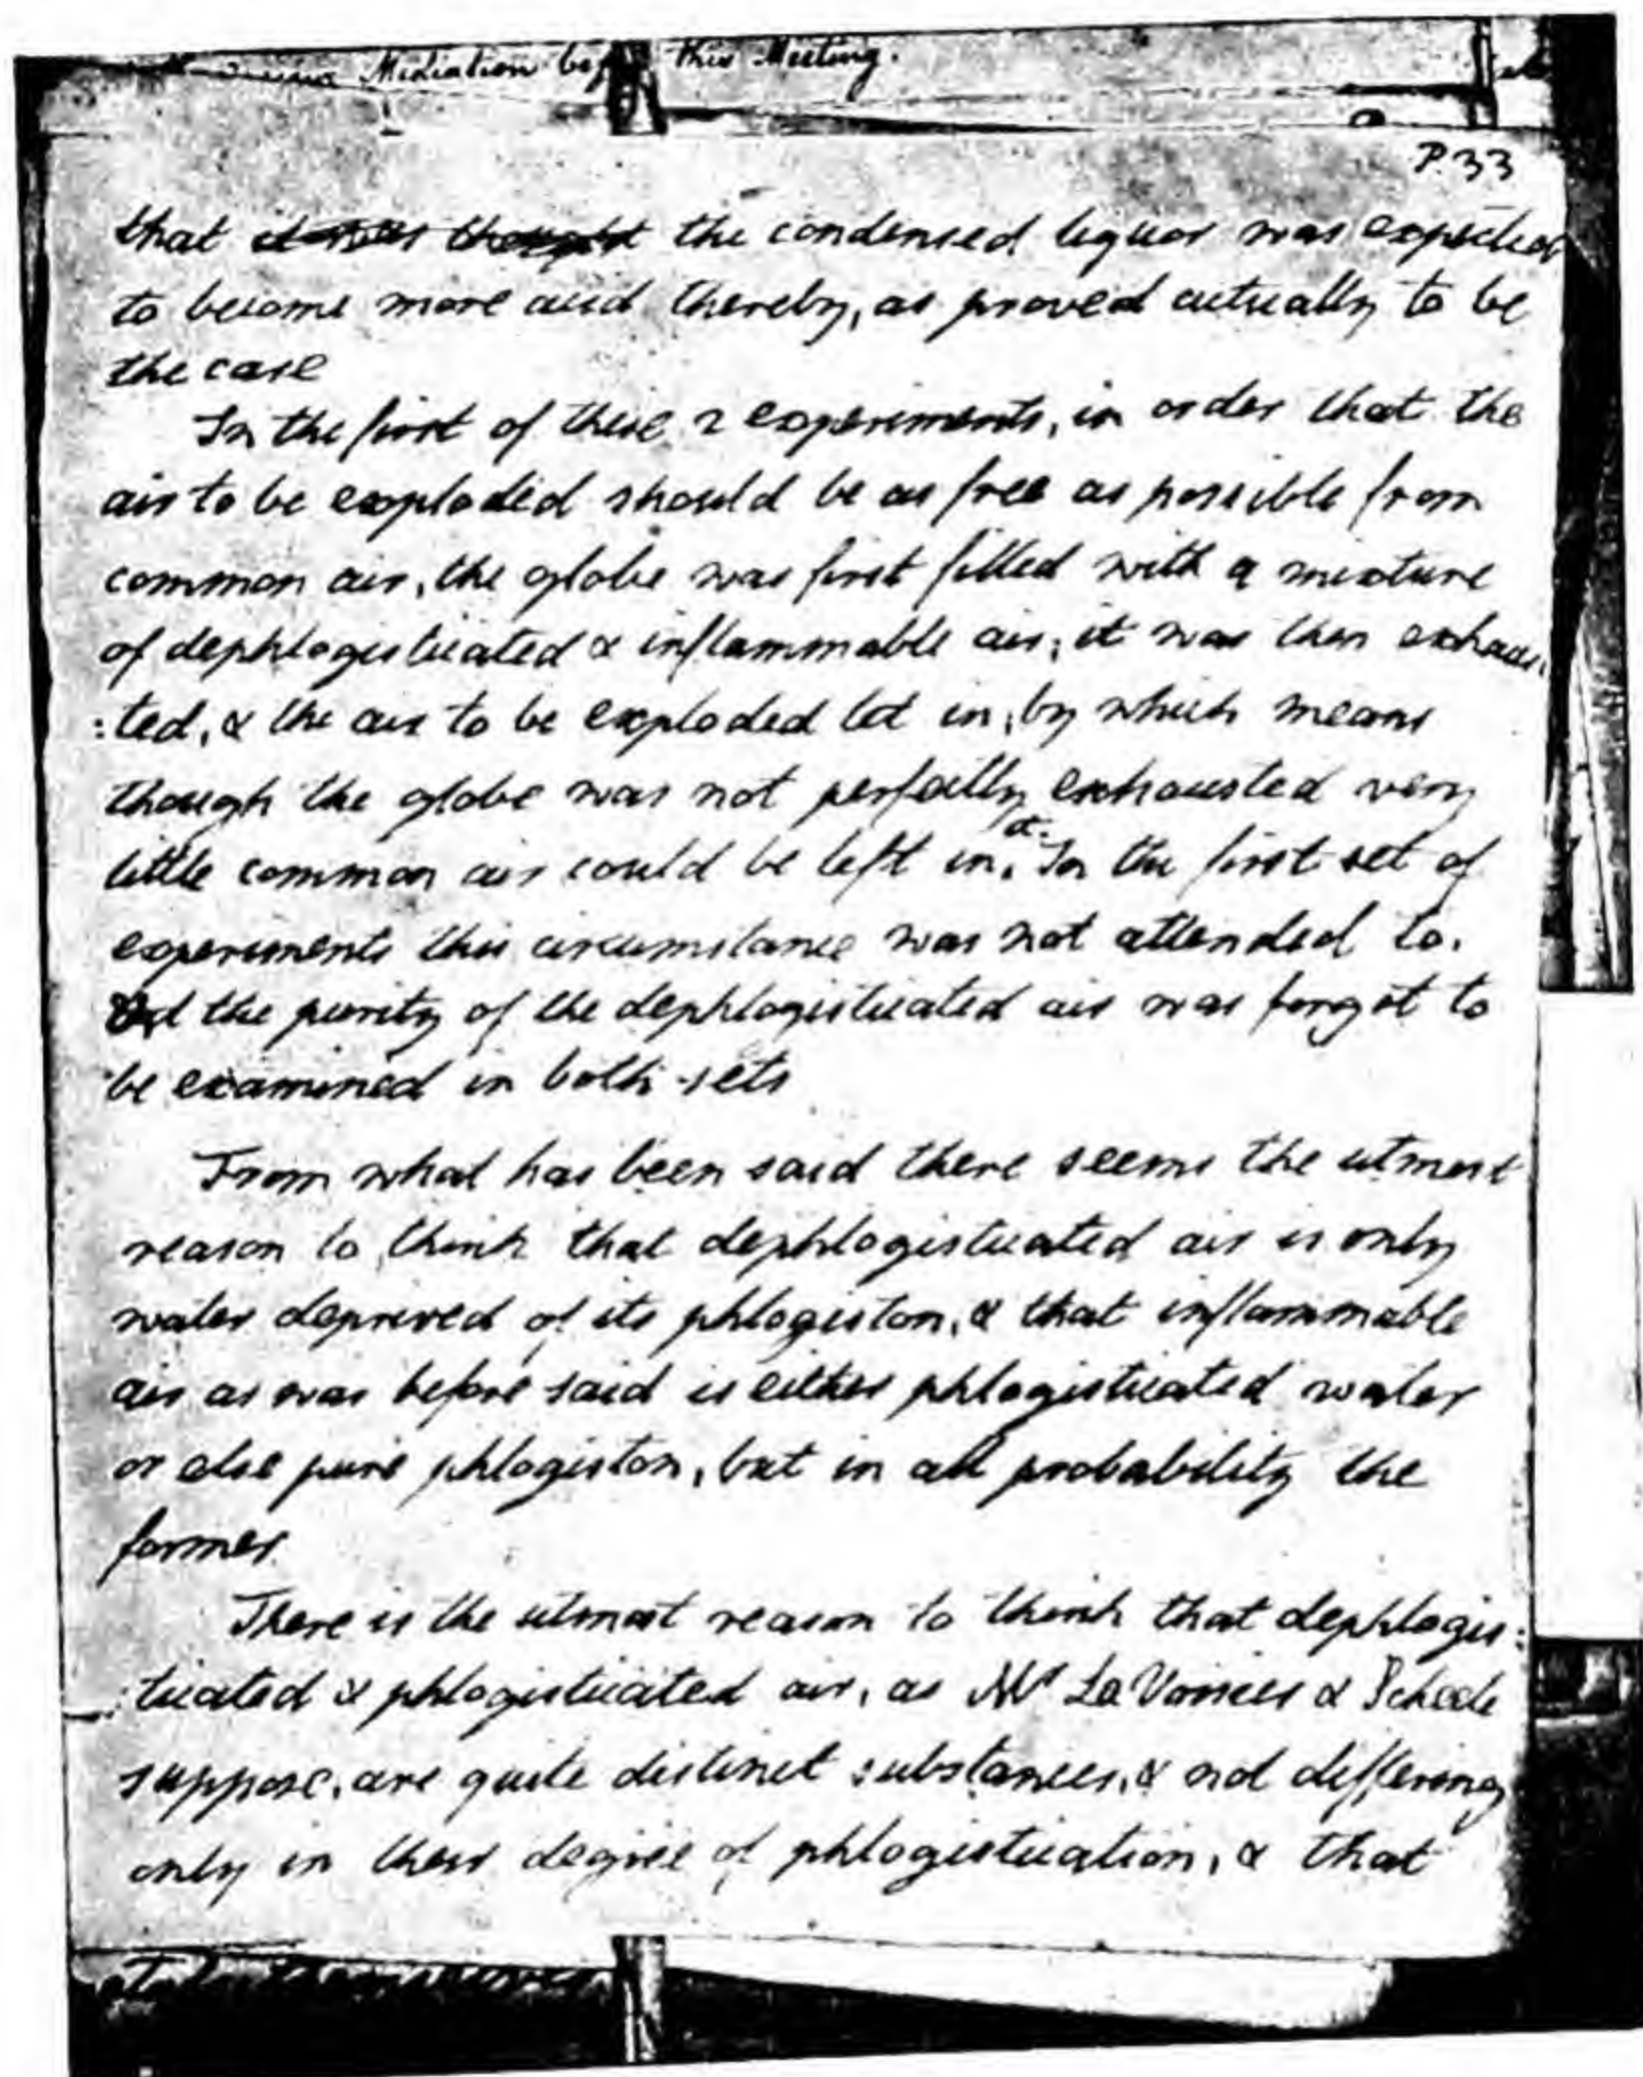 Mediation bef this Meeting.
P. 33
that it was thought the condensed liquor was expected
to become more acid thereby, as proved actually to be
the case
In the first of these 2 experiments, in order that the
air to be exploded should be as free as possible from
common air, the globe was first filled with a mixture
of dephlogisticated & inflammable air; it was then exhaus:
:ted, & the air to be exploded let in, by which means
though the globe was not perfectly exhausted very
little common air could be left in it. In the first set of
experiments this circumstance was not attended to.
And the purity of the dephlogisticated air was forgot to
be examined in both sets
From what has been said there seems the utmost
reason to think that dephlogisticated air is only
water deprived of its phlogiston, & that inflammable
air as was before said is either phlogisticated water
or else pure phlogiston, but in all probability the
former
There is the utmost reason to think that dephlogis:
:ticated & phlogisticated air, as Mr La Voisier & Scheele
suppose, are quite distinct substances, & not differing
only in their degree of phlogistication, & that